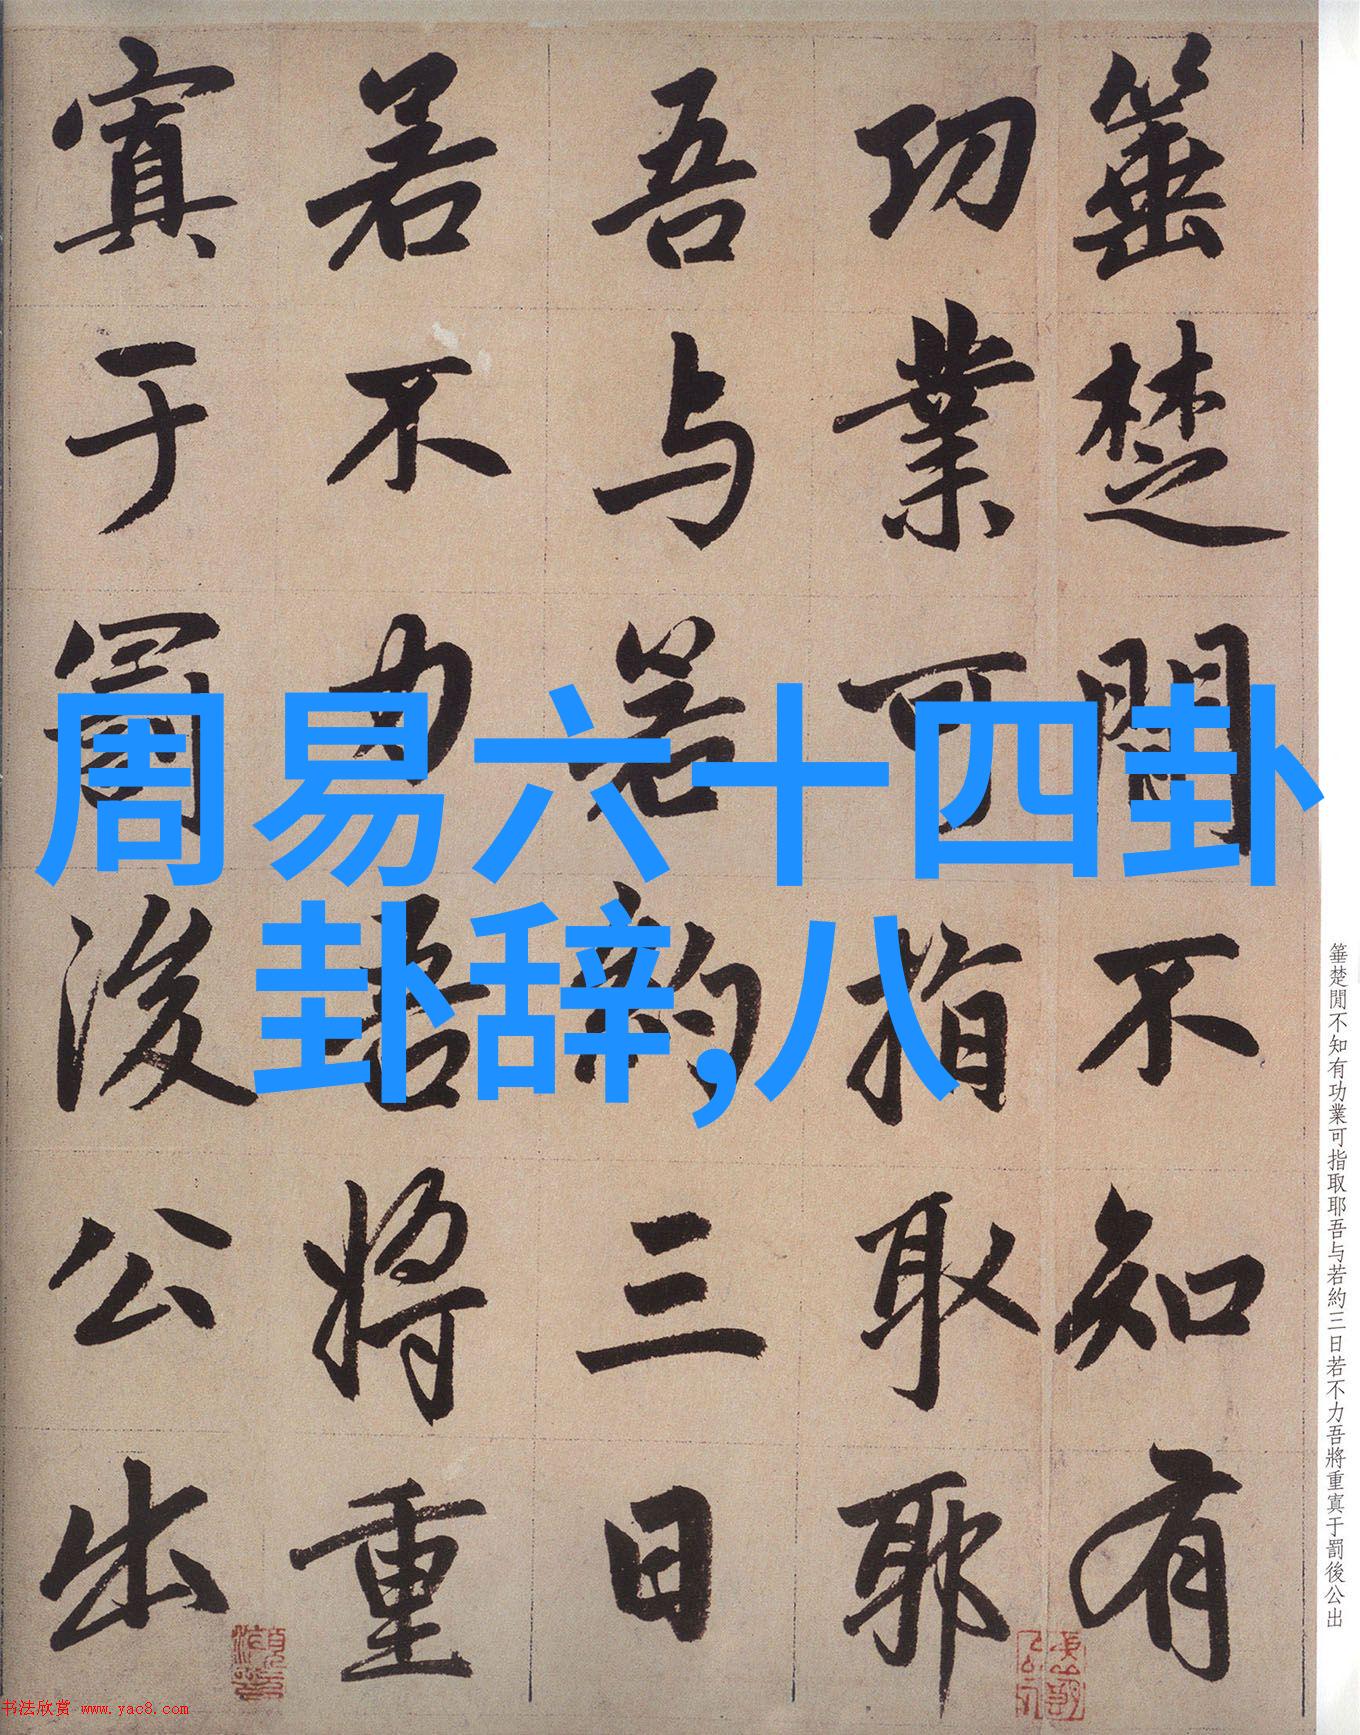 箠楚閒不知有
功業可指取耶
吾与若約三日
若不力吾將重
寘于罰後公出
周易六十四卦
卦辞,八
箠楚閒不知有功業可指取耶吾与若約三日若不力吾將重寘于罰後公出
书法欣赏 www.yac8.com